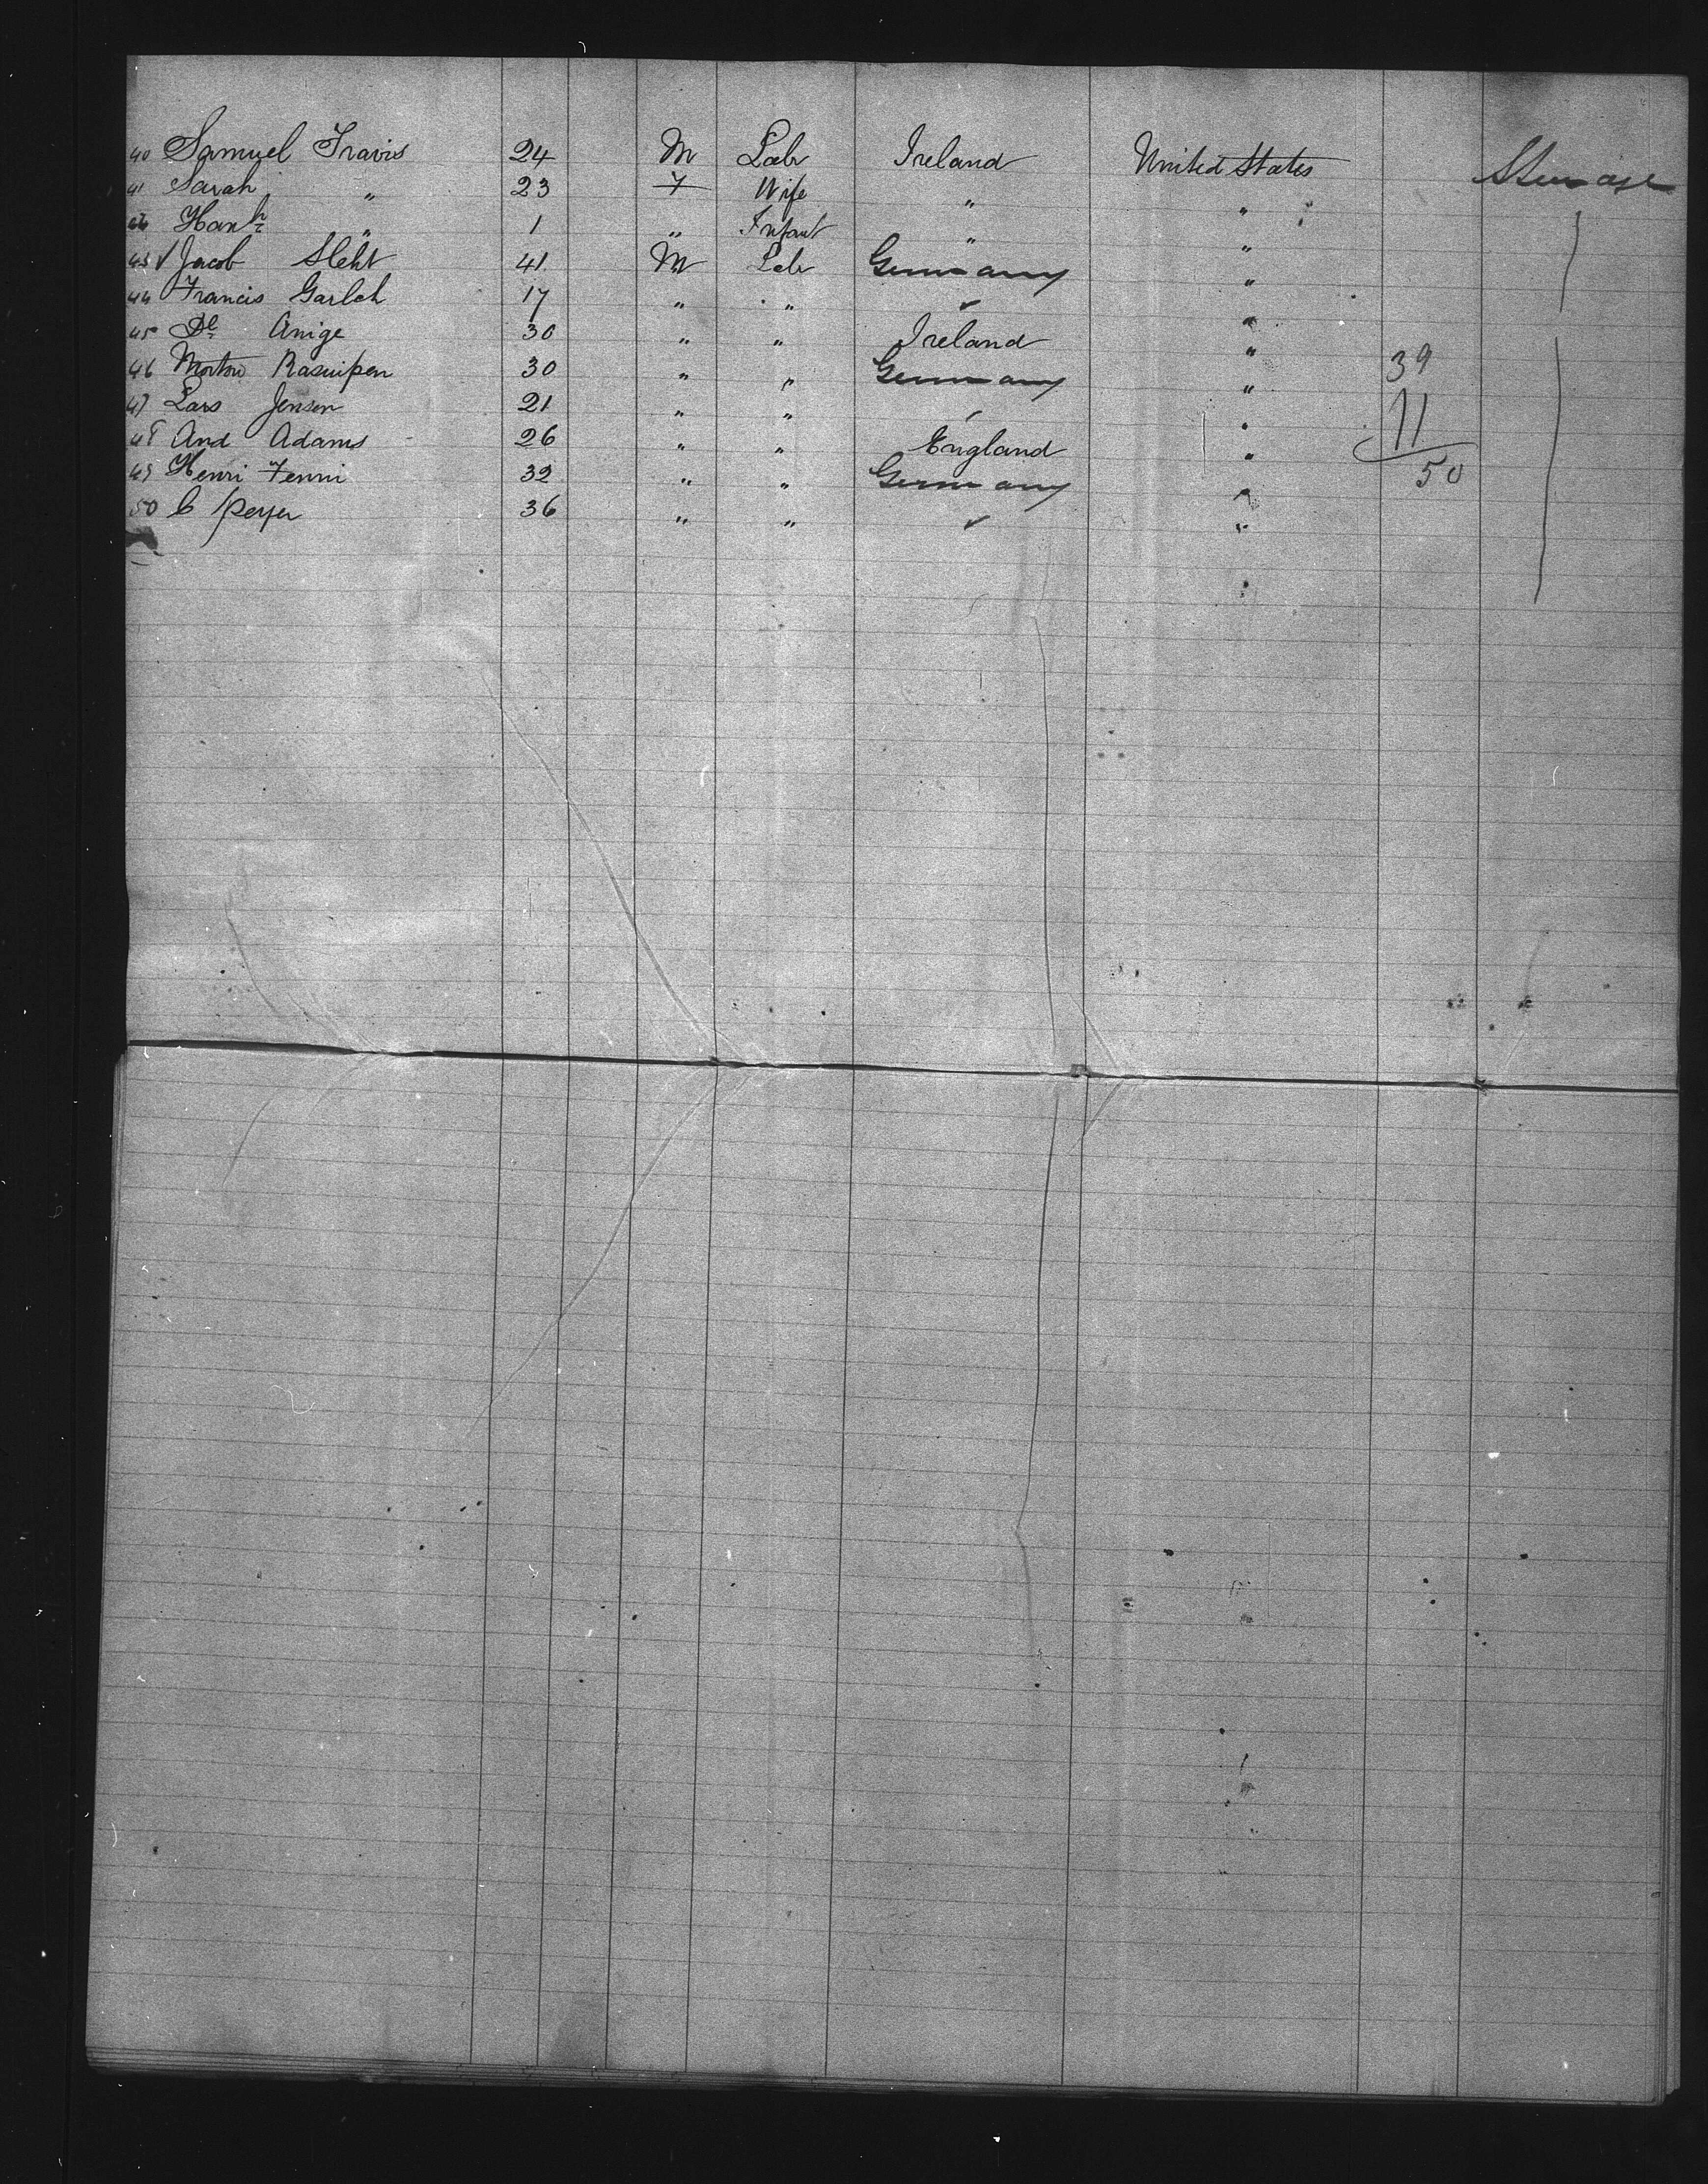 40 Samuel Travis 24 M Labr Ireland United States Steerage
41 Sarah " 23 F Wife " "
42 Hanh " 1 " Infant " "
43 √ Jacob Sleht 41 M Labr Germany "
44 Francis Garlch 17 " " " "
45 30 " " Ireland "
46 30 " " Germany " 39
47 Lars Jensen 21 " " " " 11
48 And Adams 26 " " England " 50
49 Henri Fenni 32 " " Germany "
50 C 36 " " " "